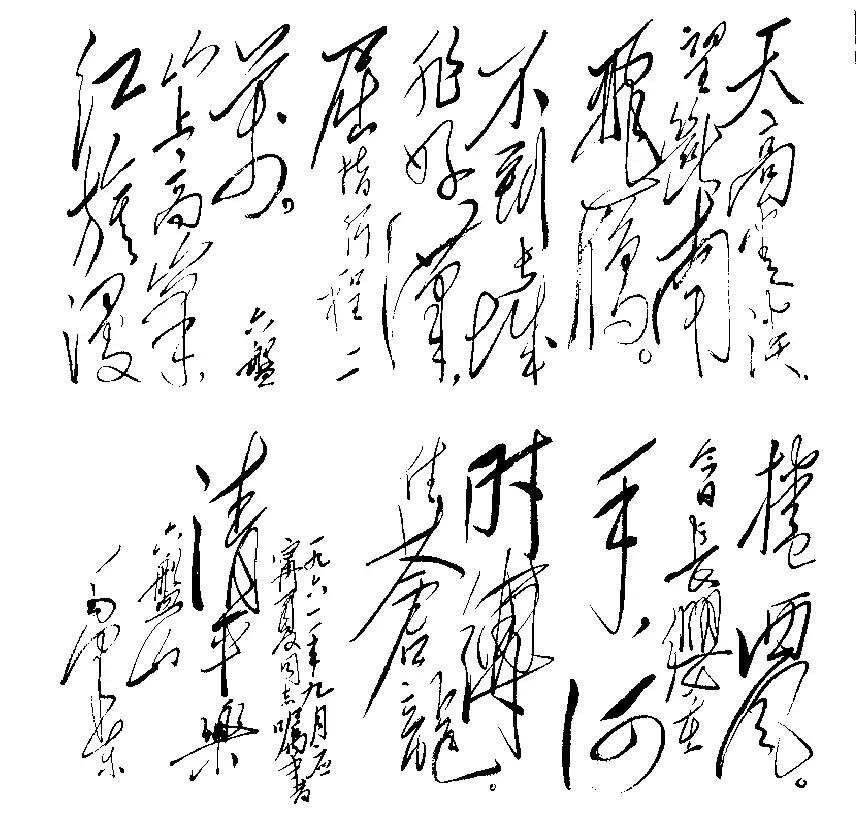 天高雲淡，
望斷南
飛鴈。
不到長城
非好漢，
屈指行程二
萬。六盤
山上高峯，
红旗漫
捲西風。
今日長纓在
手，何
时縛
住蒼龍。
一九六一年九月應
寧夏同志囑書
清平樂
六盤山
毛澤東